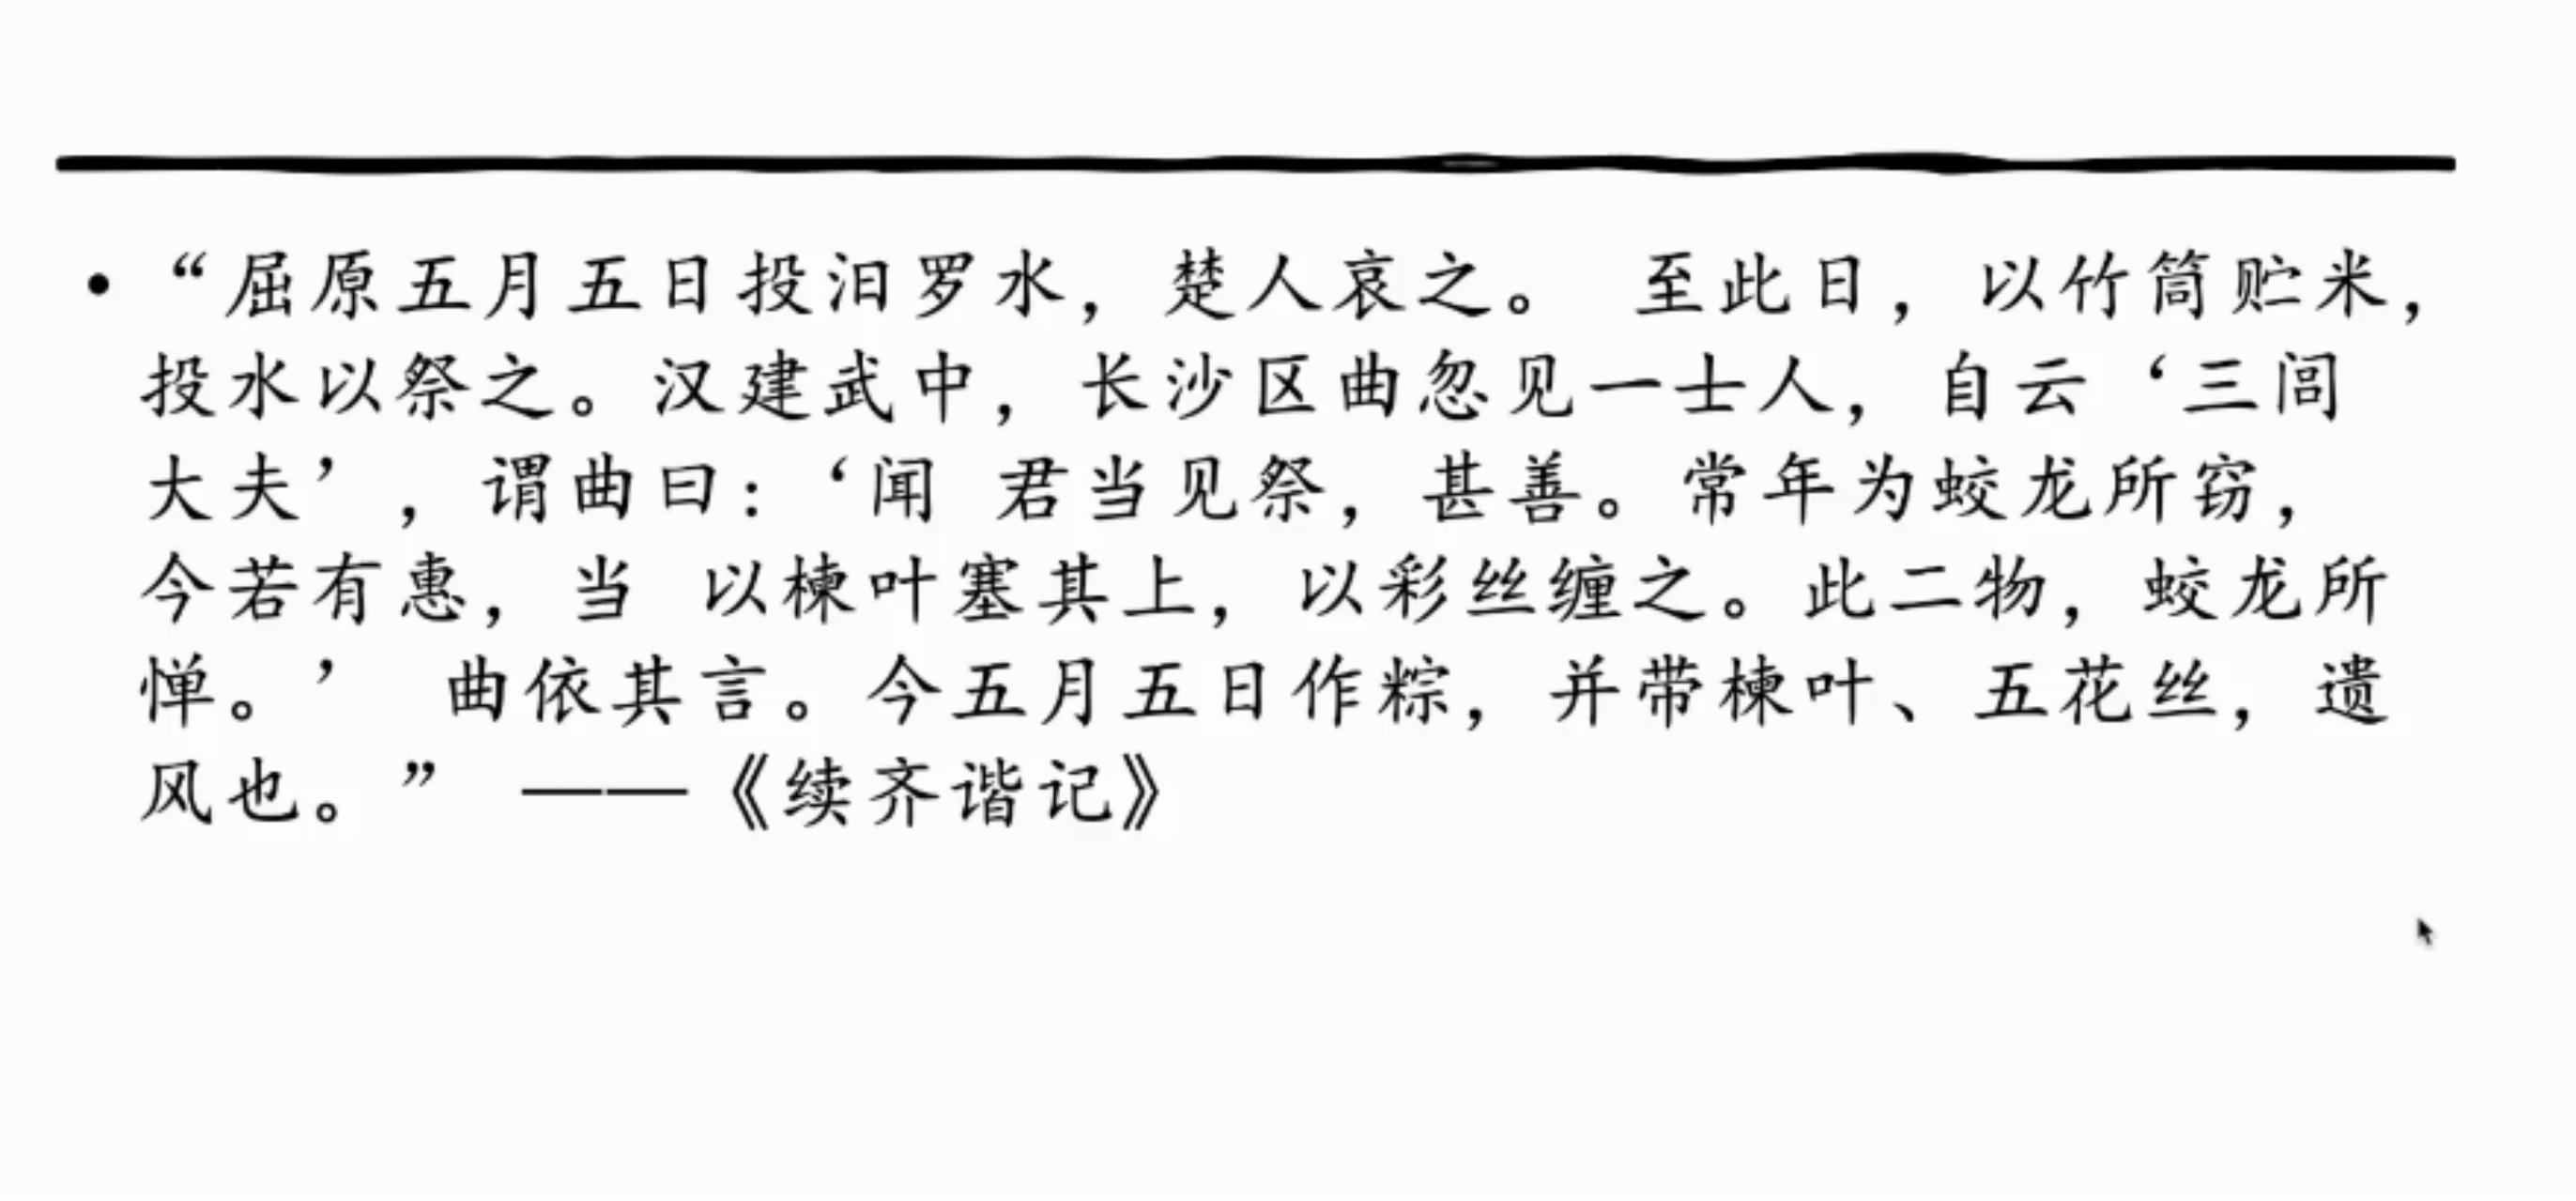 • “屈原五月五日投汨罗水，楚人哀之。 至此日，以竹筒贮米，
投水以祭之。汉建武中，长沙区曲忽见一士人，自云‘三闾
大夫’，谓曲曰：‘闻 君当见祭，甚善。常年为蛟龙所窃，
今若有惠，当 以楝叶塞其上，以彩丝缠之。此二物，蛟龙所
惮。’ 曲依其言。今五月五日作粽，并带楝叶、五花丝，遗
风也。” ——《续齐谐记》